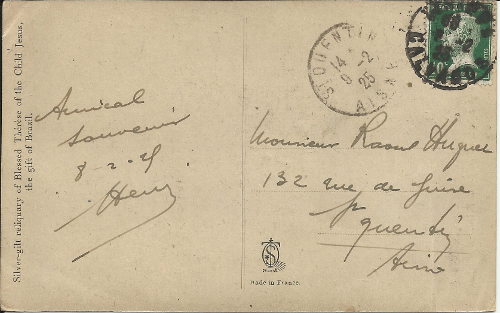 Silver-gilt reliquary of Blessed Thérèse of the Child Jesus,
the gift of Brazil.
Amical
souvenir
8-2-25
Henri
ST QUENTIN
14
8 -2
25
AISNE
Monsieur Raoul
132 rue de Guise
St Quentin
Aisne
Made in France.